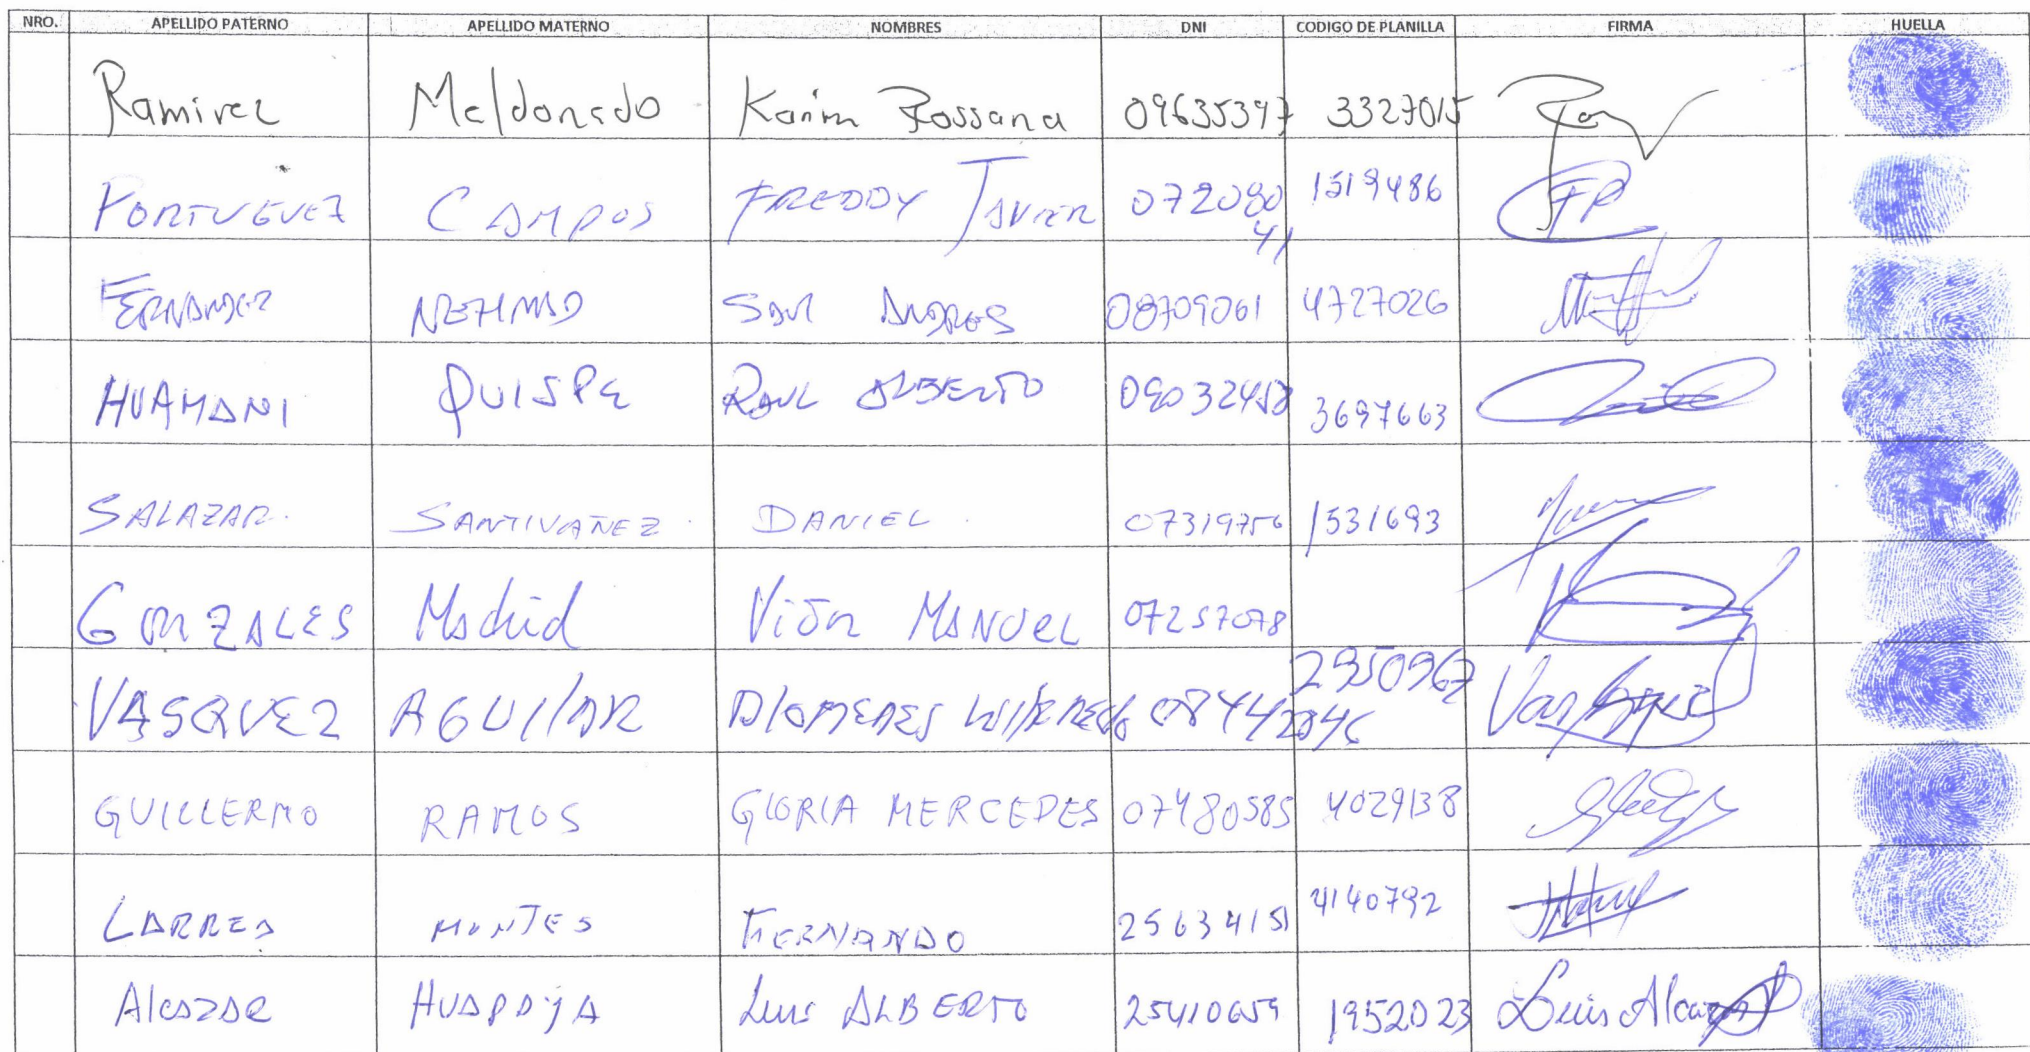 NRO. APELLIDO PATERNO APELLIDO MATERNO NOMBRES DNI CODIGO DE PLANILLA FIRMA HUELLA
Ramirez Maldonado Karim Rossana 09635397 3327015
PORTUGUEZ CAMPOS FREDDY JAVIER 07208041 1519486 FP
FERNANDEZ SAUL ANDRES 08709061 4727026
HUAMANI QUISPE RAUL ALBERTO 3697663
SALAZAR. SANTIVAÑEZ. DANIEL. 07319756 1531693
GONZALES Madrid Victor MANUEL 07257078
VASQUEZ AGUILAR DIOMEDES 2950967
GUILLERMO RAMOS GLORIA MERCEDES 07480585 4029138
LARREA MONTES FERNANDO 25634151 4140792
Alcazar HUAPAYA Luis ALBERTO 25410659 1952023 Luis Alcazar